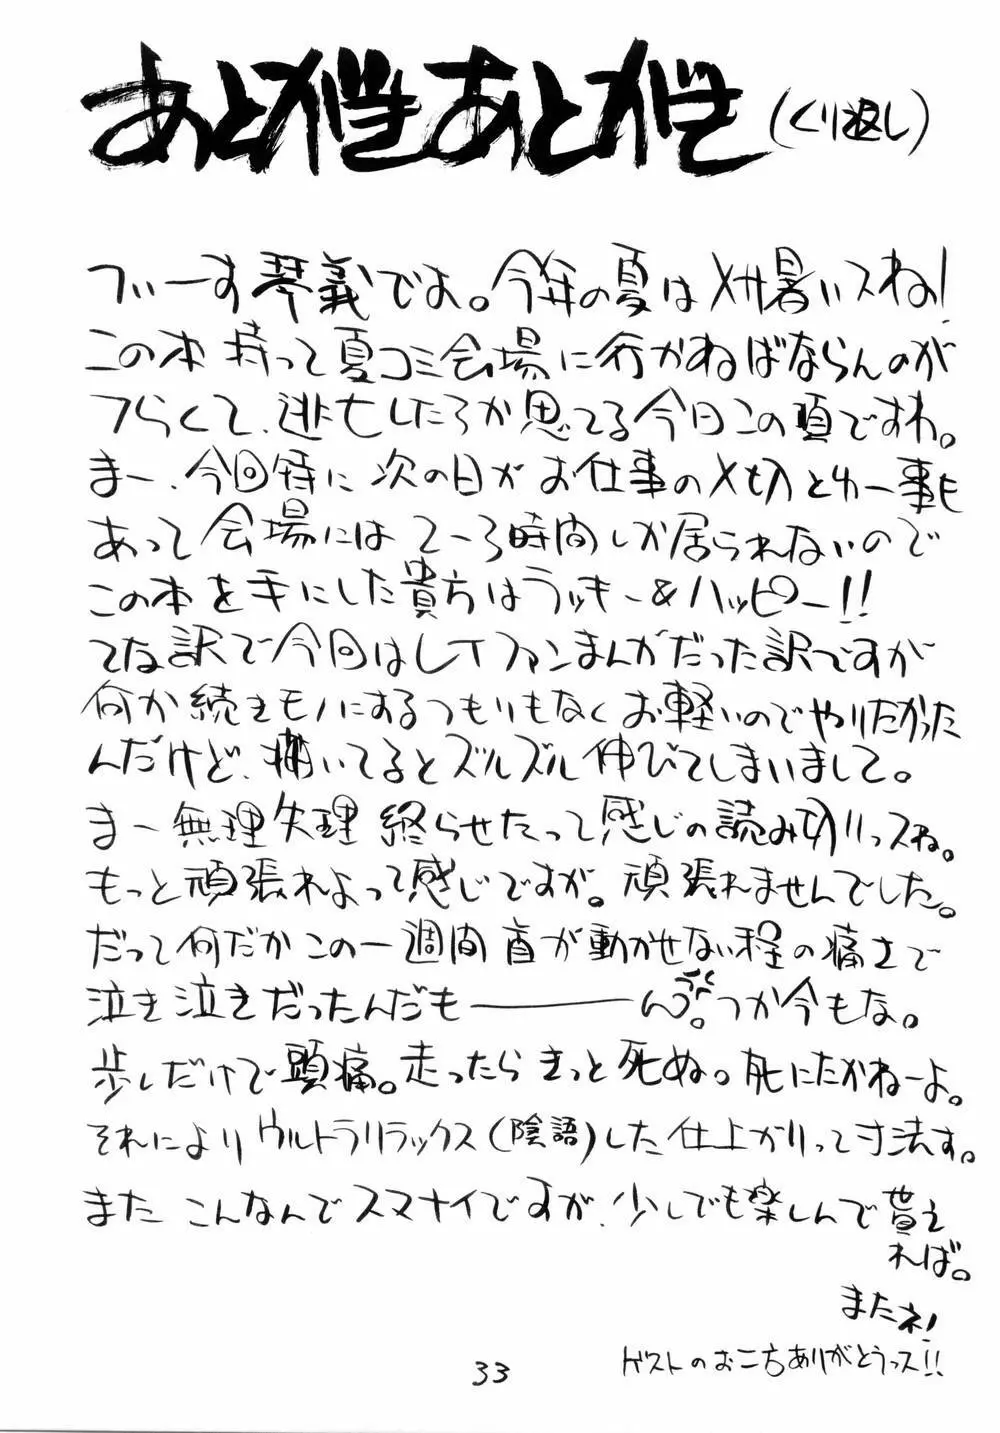 あとがきあとがき(くり返し)
づぃーす琴義でよ。今年の夏はメチャ暑いスね!
この本持って夏コミ会場に行かねばならんのが
つらくて、逃亡したろか思てる今日この頃ですわ。
まー、今回特に次の日がお仕事の〆切とゆー事も
あって会場には2~3時間しか居られないので
この本を手にした貴方はラッキー&ハッピー!!
てな訳で今回はレイファンまんがだった訳ですが
何か続きモノにするつもりもなくお軽いのでやりたかった
んだけど、描いてるとズルズル伸びてしまいまして。
まー無理矢理終らせたって感じの読み切りっスね。
もっと頑張れよって感じですが。頑張れませんでした。
だって何だかこの一週間首が動かせない程の痛さで
泣き泣きだったんだも――――ん。つか今もな。
歩くだけで頭痛。走ったらきっと死ぬ。死にたかねーよ。
それによりウルトラリラックス(陰語)した仕上がりって寸法す。
またこんなんでスマナイですが、少しでも楽しんで貰え
れば。
またネ!
ゲストのお二方ありがとうっス!!
33